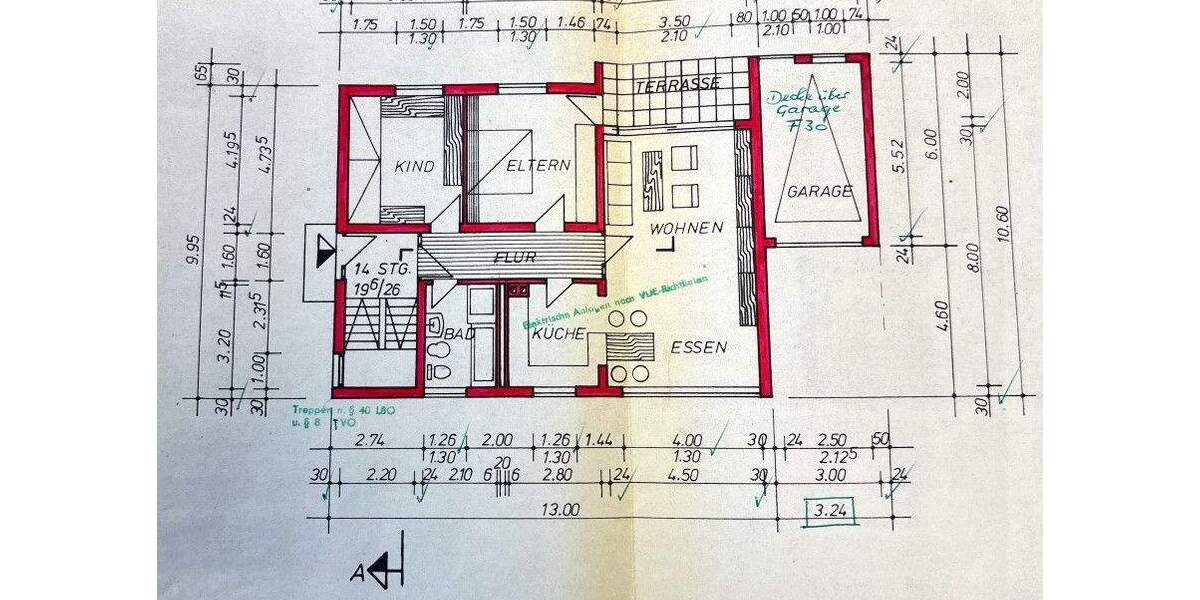 1.75 1.50 1.75 1.50 1.46 74 3.50 80 1.00 50 1.00 74
1.30 1.30 2.10 2.10 1.00
65 30 4.19⁵ 4.73⁵ 24 1.60 1.60 11⁵ 2.31⁵ 3.20 1.00 30 30
9.95
TERRASSE
Decke über
Garage
F 30
KIND
ELTERN
GARAGE
WOHNEN
FLUR
14 STG.
19⁶/26
Elektrische Anlagen nach VDE-Richtlinien
BAD
KÜCHE
ESSEN
24 2.00 30 5.52 6.00 10.60 8.00 24 4.60 30
Treppen n. § 40 LBO
u. § 8 TVO
2.74 1.26 2.00 1.26 1.44 4.00 30 24 2.50 50
1.30 1.30 1.30 2.12⁵
30 2.20 24 2.10 6 20 6 2.80 24 4.50 30 3.00 24
13.00 3.24
A